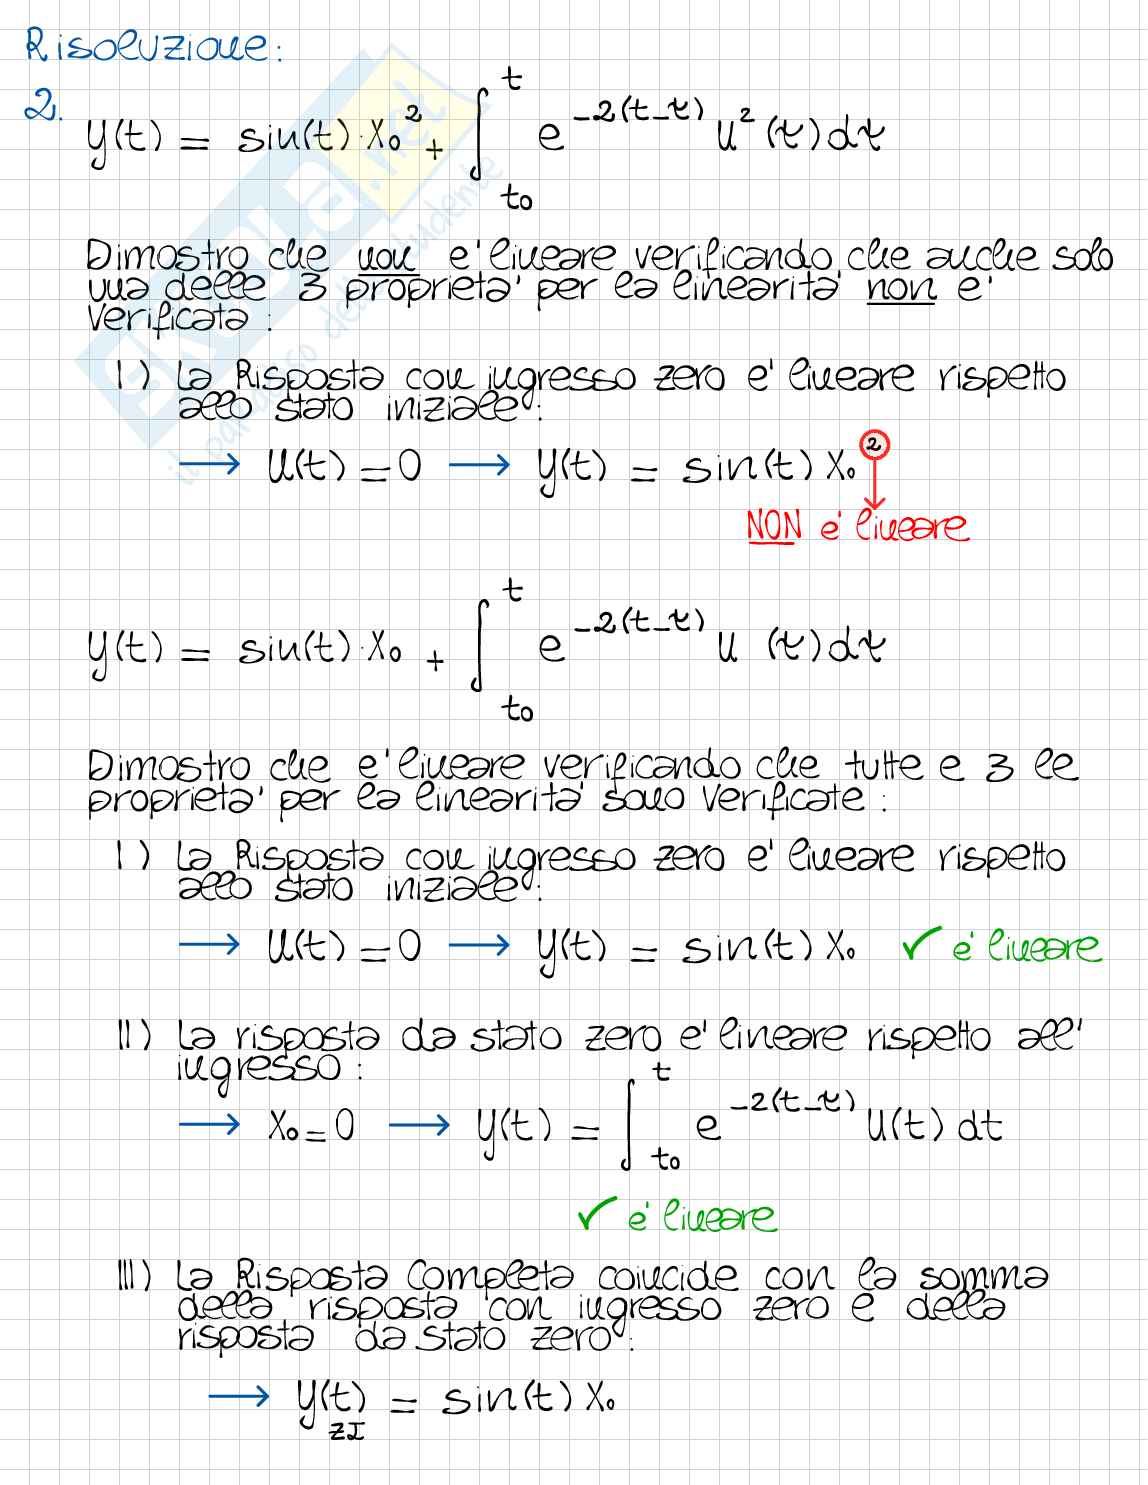 Risoluzione:
2. y(t) = sin(t)·x₀² + ∫_{t₀}^{t} e^{-2(t-τ)} u²(τ)dτ
Dimostro che non e' lineare verificando che anche solo
una delle 3 proprieta' per la linearita' non e'
verificata:
I) La Risposta con ingresso zero e' lineare rispetto
allo stato iniziale:
→ U(t)=0 → y(t) = sin(t) x₀²
NON e' lineare
y(t) = sin(t)·x₀ + ∫_{t₀}^{t} e^{-2(t-τ)} u (τ)dτ
Dimostro che e' lineare verificando che tutte e 3 le
proprieta' per la linearita' sono verificate:
I) La Risposta con ingresso zero e' lineare rispetto
allo stato iniziale:
→ U(t)=0 → y(t) = sin(t) x₀ ✓ e' lineare
II) La risposta da stato zero e' lineare rispetto all'
ingresso:
→ x₀=0 → y(t) = ∫_{t₀}^{t} e^{-2(t-τ)} U(t) dt
✓ e' lineare
III) La Risposta Completa coincide con la somma
della risposta con ingresso zero e della
risposta da stato zero:
→ y(t)_{ZI} = sin(t) x₀
SKUOLA.net
il paradiso dello studente